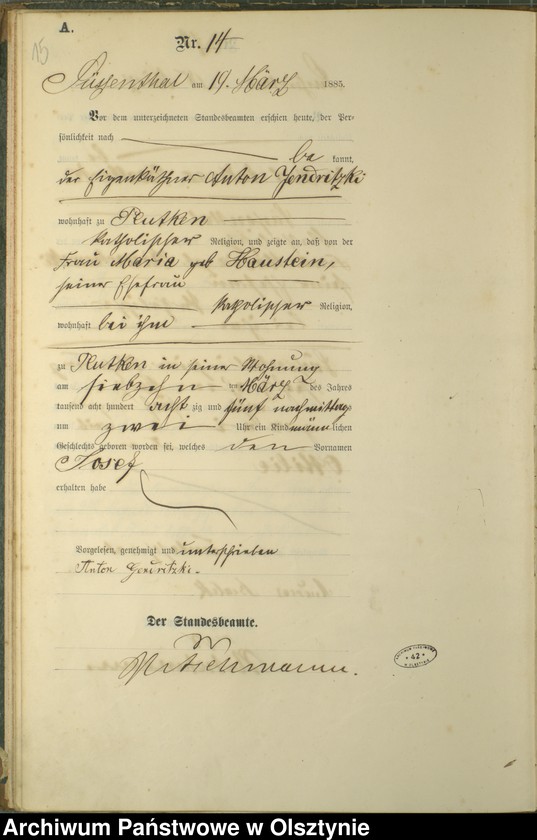 A.
15
Nr. 14
Süssenthal am 19. März 1885.
Vor dem unterzeichneten Standesbeamten erschien heute, der Per-
sönlichkeit nach
be kannt,
der Eigenkäthner Anton Jendritzki
wohnhaft zu Rutken
katholischer Religion, und zeigte an, daß von der
Frau Maria geb Haustein,
seiner Ehefrau
katholischer Religion,
wohnhaft bei ihm
zu Rutken in seiner Wohnung
am siebzehn ten März des Jahres
tausend acht hundert acht zig und fünf nachmittags
um zwei Uhr ein Kind männlichen
Geschlechts geboren worden sei, welches den Vornamen
Josef
erhalten habe
Vorgelesen, genehmigt und unterschrieben
Anton Jendritzki.
Der Standesbeamte.
42
Archiwum Państwowe w Olsztynie